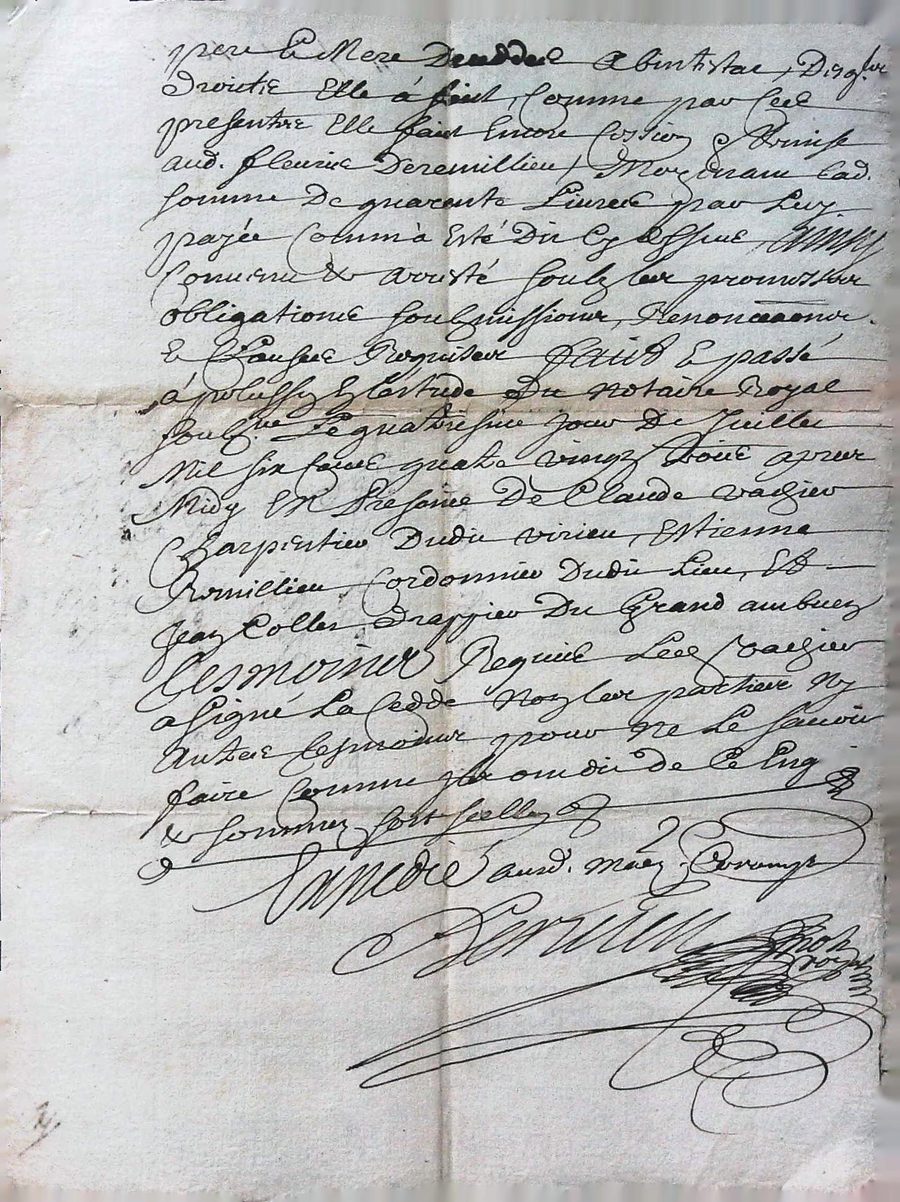 pere & Mere Decedde abintestat, Desqls
Droictz Elle à faict, Comme par Ces
presentes Elle faict Encore Cession & Remise
aud. fleurie Deremillieu, Moyenant lad.
somme De quarante Livres par Luy
payée Comm'à Esté Dit Cy dessus, Ainsy
Convenu & arresté soubz leur promesses
obligations soubmissions, Renonciations
& Clauses Requises faict & passé
à & Estude Du Notaire Royal
soubz.ne Le quatriesme jour De Juillet
Mil six Cents quatre vingz trois apres
Midy En Presence De Claude vachier
Charpentier Dudit virieu, Estienne
Romillieu Cordonnier Dudit Lieu, Et
Jean Collet Drappier Du Grand
tesmoins Requis Led. vachier
a signé La Cedde Non les parties Ny
Autres tesmoins pour Ne Le scavoir
faire Comme ils ont dit de Ce Enq
& sommez
Expedié aud.
not
royal